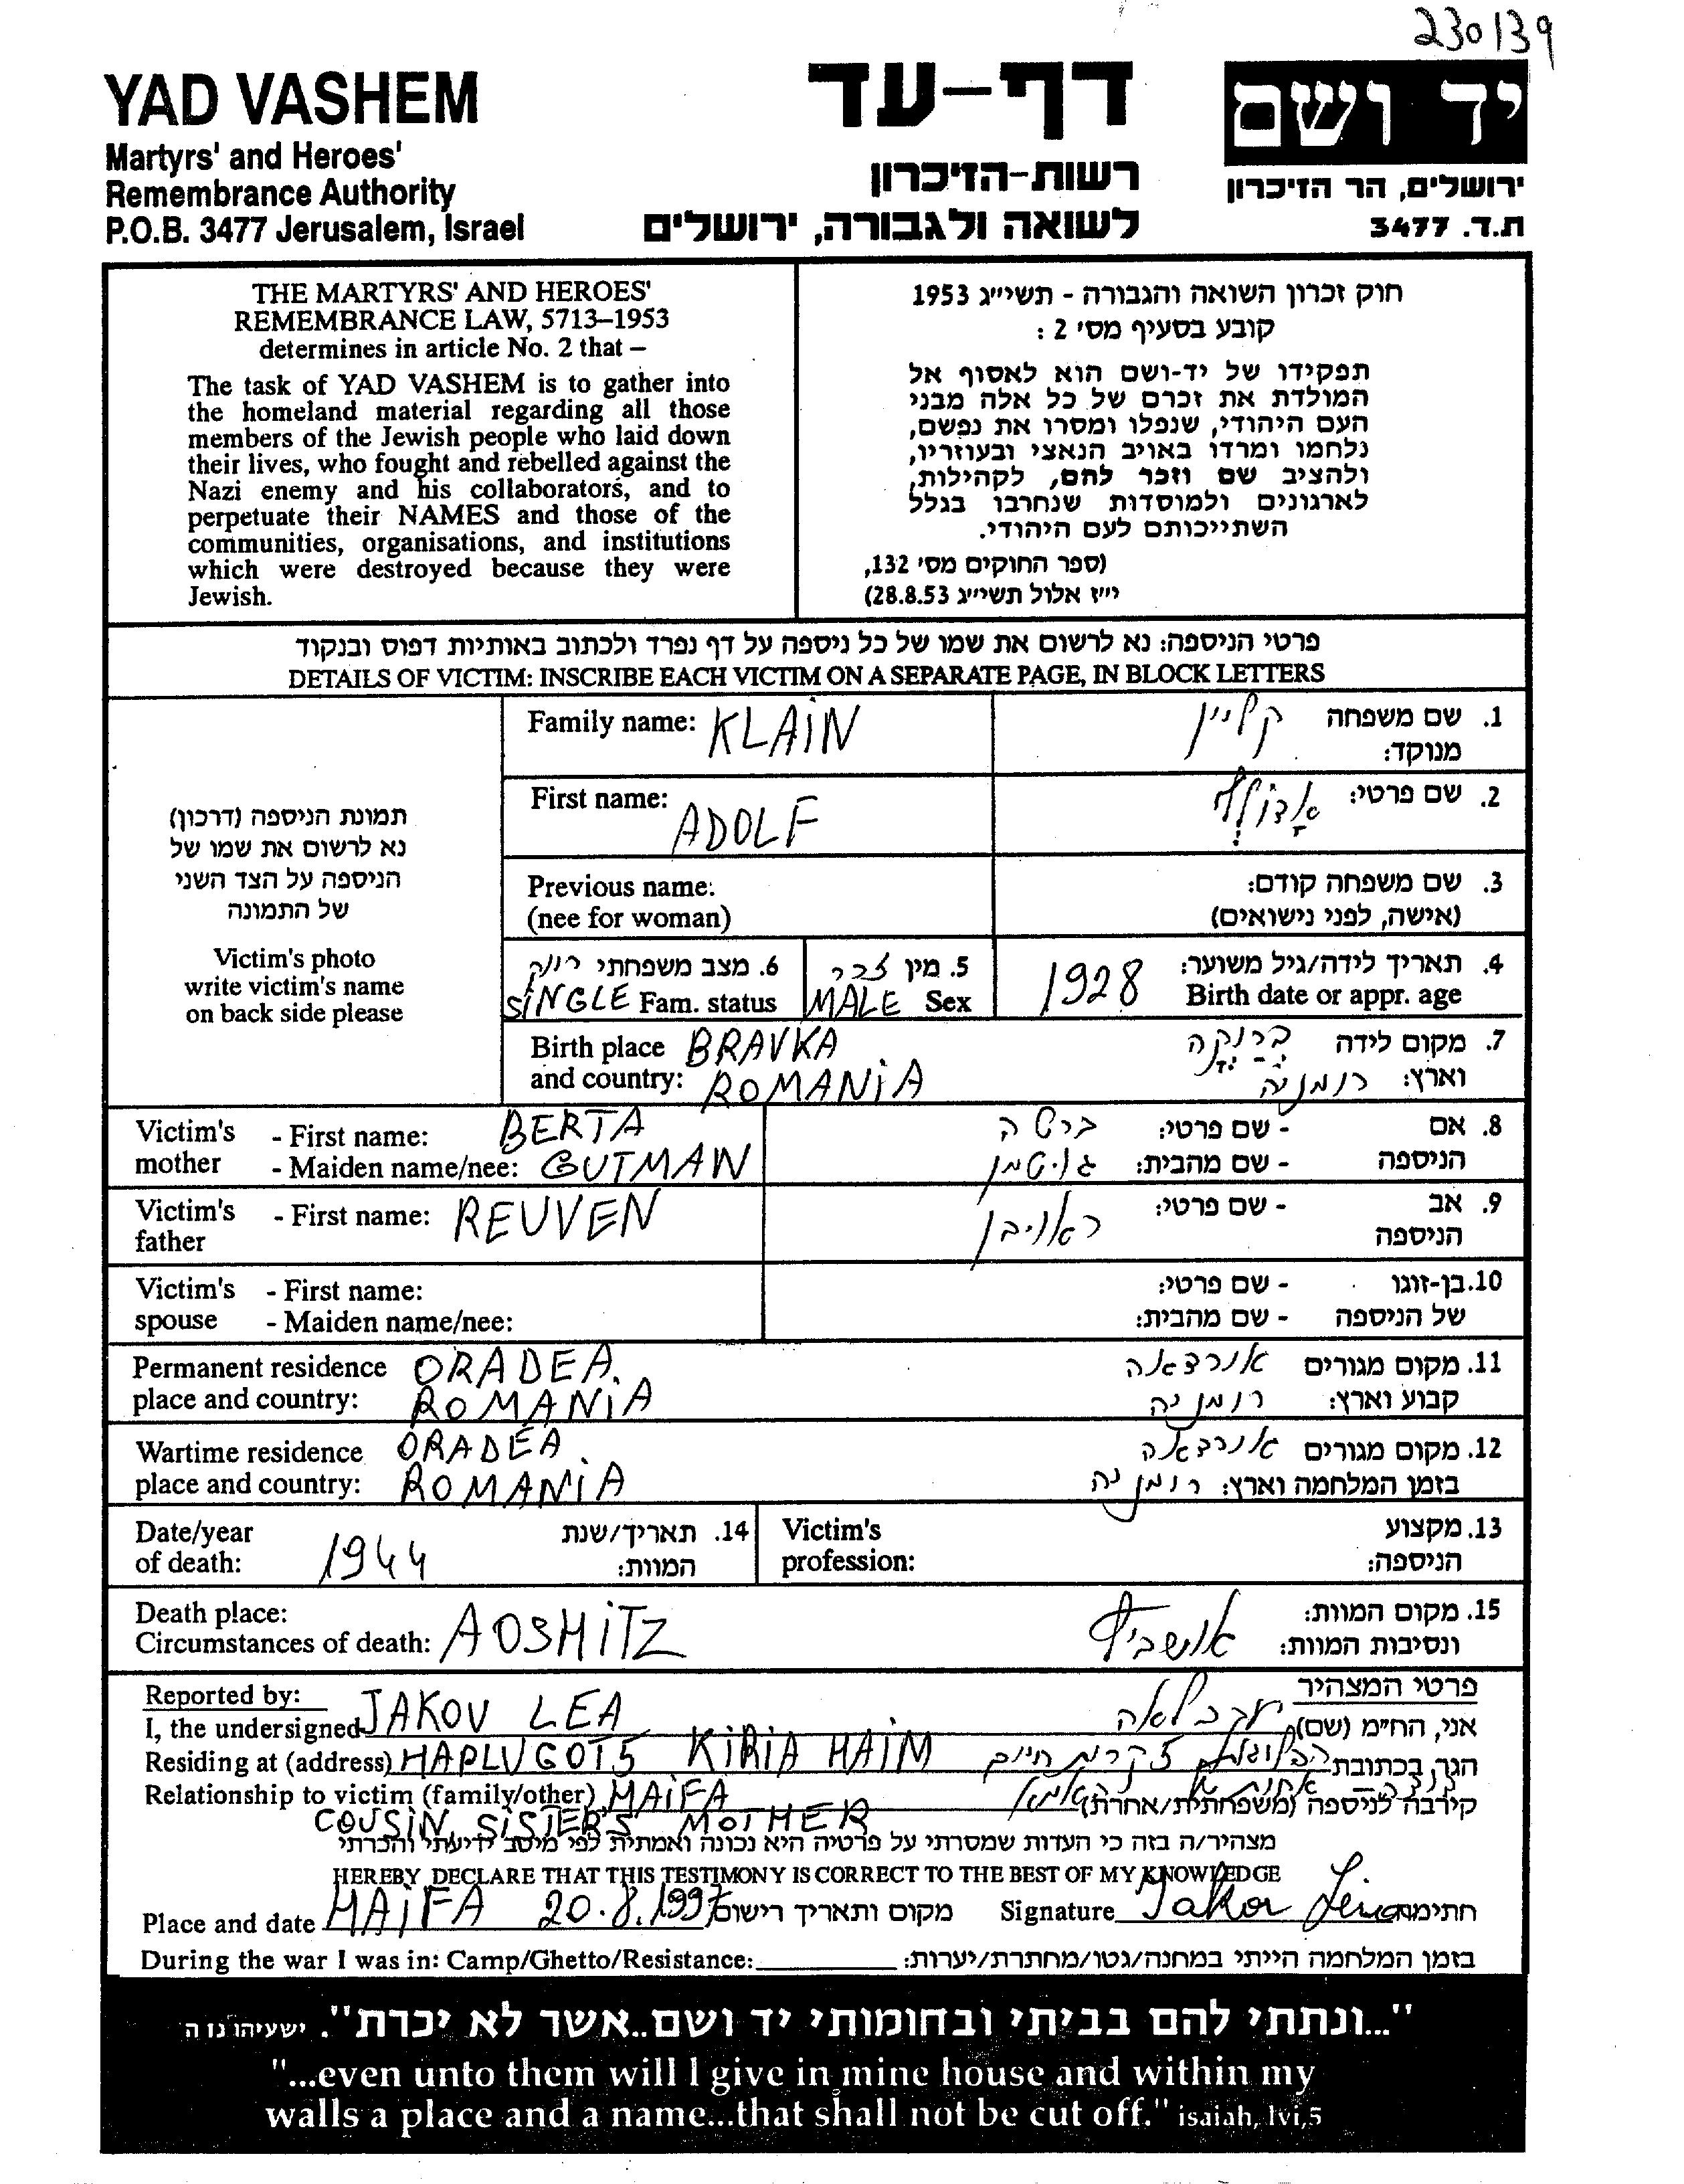 230139
YAD VASHEM
Martyrs' and Heroes'
Remembrance Authority
P.O.B. 3477 Jerusalem, Israel
דף-עד
רשות-הזיכרון
לשואה ולגבורה, ירושלים
יד ושם
ירושלים, הר הזיכרון
ת.ד. 3477
THE MARTYRS' AND HEROES'
REMEMBRANCE LAW, 5713–1953
determines in article No. 2 that –
The task of YAD VASHEM is to gather into
the homeland material regarding all those
members of the Jewish people who laid down
their lives, who fought and rebelled against the
Nazi enemy and his collaborators, and to
perpetuate their NAMES and those of the
communities, organisations, and institutions
which were destroyed because they were
Jewish.
חוק זכרון השואה והגבורה - תשי״ג 1953
קובע בסעיף מס' 2 :
תפקידו של יד-ושם הוא לאסוף אל
המולדת את זכרם של כל אלה מבני
העם היהודי, שנפלו ומסרו את נפשם,
נלחמו ומרדו באויב הנאצי ובעוזריו,
ולהציב שם וזכר להם, לקהילות,
לארגונים ולמוסדות שנחרבו בגלל
השתייכותם לעם היהודי.
(ספר החוקים מס' 132,
י״ז אלול תשי״ג 28.8.53)
פרטי הניספה: נא לרשום את שמו של כל ניספה על דף נפרד ולכתוב באותיות דפוס ובנקוד
DETAILS OF VICTIM: INSCRIBE EACH VICTIM ON A SEPARATE PAGE, IN BLOCK LETTERS
תמונת הניספה (דרכון)
נא לרשום את שמו של
הניספה על הצד השני
של התמונה
Victim's photo
write victim's name
on back side please
Family name: KLAIN
1. שם משפחה קליין
מנוקד:
First name: ADOLF
2. שם פרטי: אדולף
Previous name:
(nee for woman)
3. שם משפחה קודם:
(אישה, לפני נישואים)
6. מצב משפחתי רווק
SINGLE Fam. status
5. מין זכר
MALE Sex
4. תאריך לידה/גיל משוער:
1928 Birth date or appr. age
Birth place BRAVKA
and country: ROMANIA
7. מקום לידה ברווקה
וארץ: רומניה
Victim's - First name: BERTA
mother - Maiden name/nee: GUTMAN
8. אם - שם פרטי: ברטה
הניספה - שם מהבית: גוטמן
Victim's - First name: REUVEN
father
9. אב - שם פרטי: ראובן
הניספה
Victim's - First name:
spouse - Maiden name/nee:
10. בן-זוגו - שם פרטי:
של הניספה - שם מהבית:
Permanent residence ORADEA
place and country: ROMANIA
11. מקום מגורים אורדאה
קבוע וארץ: רומניה
Wartime residence ORADEA
place and country: ROMANIA
12. מקום מגורים אורדאה
בזמן המלחמה וארץ: רומניה
Date/year
of death: 1944
14. תאריך/שנת
המוות:
Victim's
profession:
13. מקצוע
הניספה:
Death place:
Circumstances of death: AOSHITZ
15. מקום המוות: אושביץ
ונסיבות המוות:
Reported by:
I, the undersigned JAKOV LEA
Residing at (address) HAPLUGOT 5 KIRIA HAIM
Relationship to victim (family/other) HAIFA
COUSIN, SISTER'S MOTHER
פרטי המצהיר
אני, הח״מ (שם) יעקב לאה
הגר בכתובת הפלוגות 5 קרית חיים
קירבה לניספה (משפחתית/אחרת)
מצהיר/ה בזה כי העדות שמסרתי על פרטיה היא נכונה ואמתית לפי מיטב ידיעתי והכרתי
HEREBY DECLARE THAT THIS TESTIMONY IS CORRECT TO THE BEST OF MY KNOWLEDGE
Place and date HAIFA 20.8.1997 מקום ותאריך רישום Signature Jakov חתימה
During the war I was in: Camp/Ghetto/Resistance: בזמן המלחמה הייתי במחנה/גטו/מחתרת/יערות:
"...ונתתי להם בביתי ובחומותי יד ושם..אשר לא יכרת". ישעיהו נו ה
"...even unto them will I give in mine house and within my
walls a place and a name...that shall not be cut off." isaiah, lvi,5